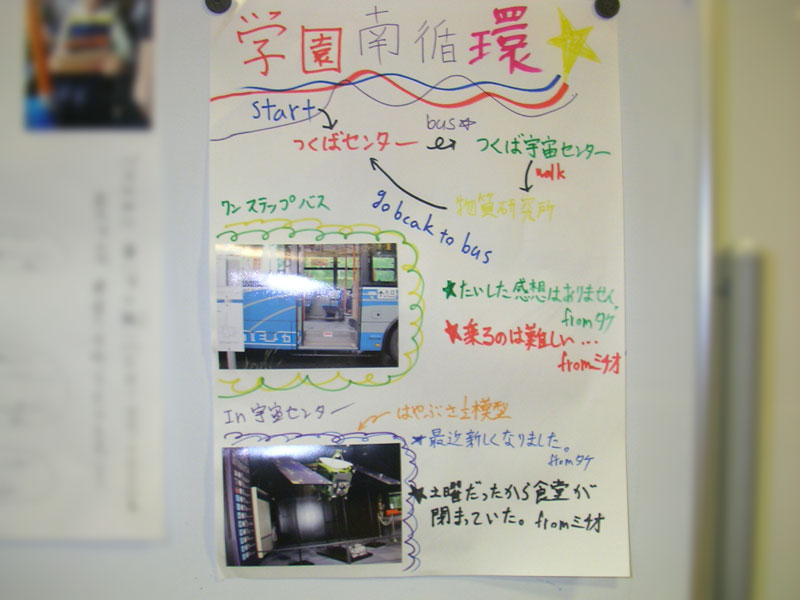 学園南循環
start
つくばセンター
bus☆
つくば宇宙センター
walk
物質研究所
go bcak to bus
ワンステップバス
★たいした感想はありません。
fromタケ
★乗るのは難しい…
fromミチオ
In宇宙センター
はやぶさ1/2模型
★最近新しくなりました。
fromタケ
★土曜だったから食堂が
閉まっていた。fromミチオ